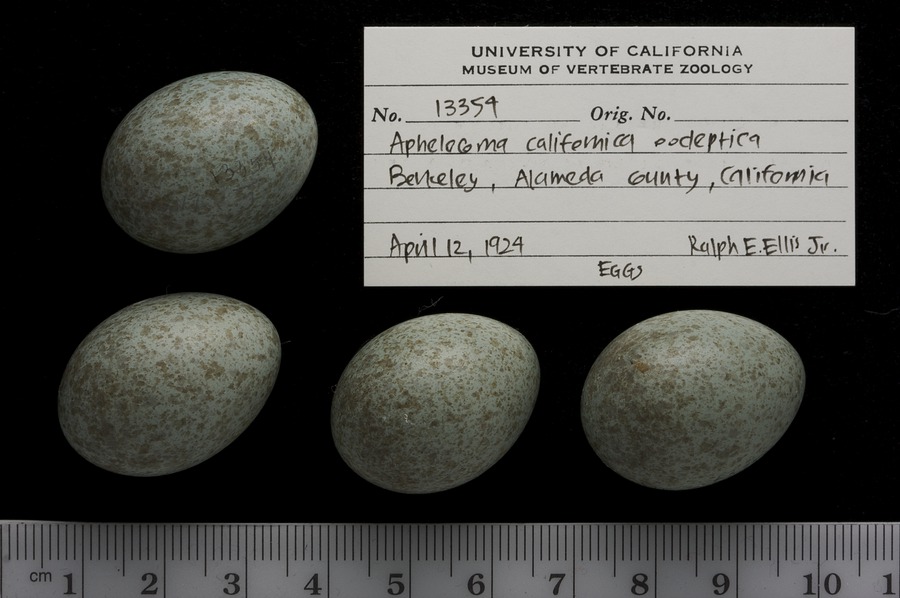 UNIVERSITY OF CALIFORNIA
MUSEUM OF VERTEBRATE ZOOLOGY
No. 13359 Orig. No.
Aphelocoma californica oocleptica
Berkeley, Alameda County, California
April 12, 1924 Ralph E. Ellis Jr.
EGGS
cm 1 2 3 4 5 6 7 8 9 10 1